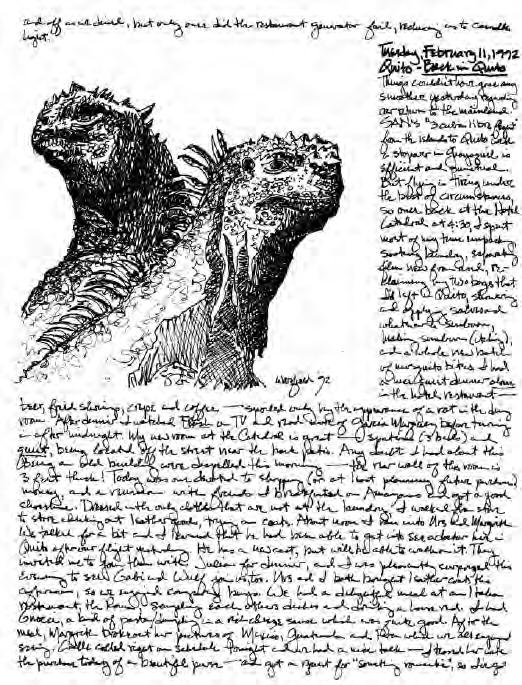 and off as we dined, but only once did the restaurant generator fail, reducing us to candle
light.
Tuesday, February 11, 1992
Quito - Back in Quito
Things couldn't have gone any
smoother yesterday
our return to the mainland.
SAN's "3 cuba libre flight"
from the islands to Quito
stopover in Guayaquil is
efficient and punctual.
But flying is tiring under
the best of circumstances,
so once back at the Hotel
Catedral at 4:30, I spent
most of my time
sorting laundry, separating
film
my two bags that
I'd left in Quito,
and
what
sunburn
and a whole new batch
of mosquito bites. I had
a quiet dinner alone
in the hotel restaurant —
Werfack 92
beer, fried shrimp, crepe and coffee — spoiled only by the appearance of a rat in the dining
room. After dinner I watched on TV and read more of Garcia Marquez before turning
in after midnight. My new room at the Catedral is great — spacious (3 beds) and
quiet, being located off the street near the back patio. Any doubt I had about this
being an old building were dispelled this morning — the rear wall of this room is
3 feet thick! Today was one devoted to shopping (or at least planning future purchases)
money, and a reunion with friends. I breakfasted on Amazonas and got a good
Dressed in the only clothes that are not at the laundry, I walked from store
to store checking out leather goods, trying on coats. About noon I ran into Urs and Margrit.
We talked for a bit and I learned that he had been able to get into see a doctor here in
Quito after our flight yesterday. He has a new cast, but will be able to walk on it. They
invited me to join them with Julia for dinner, and I was pleasantly surprised this
evening to see Gabi and Wulf join us too. Urs and I both bought leather coats this
afternoon, so we enjoyed comparing buys. We had a delightful meal at an Italian
restaurant, the Roma, sampling each others dishes and drinking a house red. I had
Gnocci, a kind of pasta/dumpling in a rich cheese sauce which was quite good. After the
meal, Margrit broke out her pictures of Mexico, Guatemala and Peru which we all enjoyed
seeing. called right on schedule tonight and we had a nice talk — I teased her with
the purchase today of a beautiful purse — and got a request for "something romantic", so